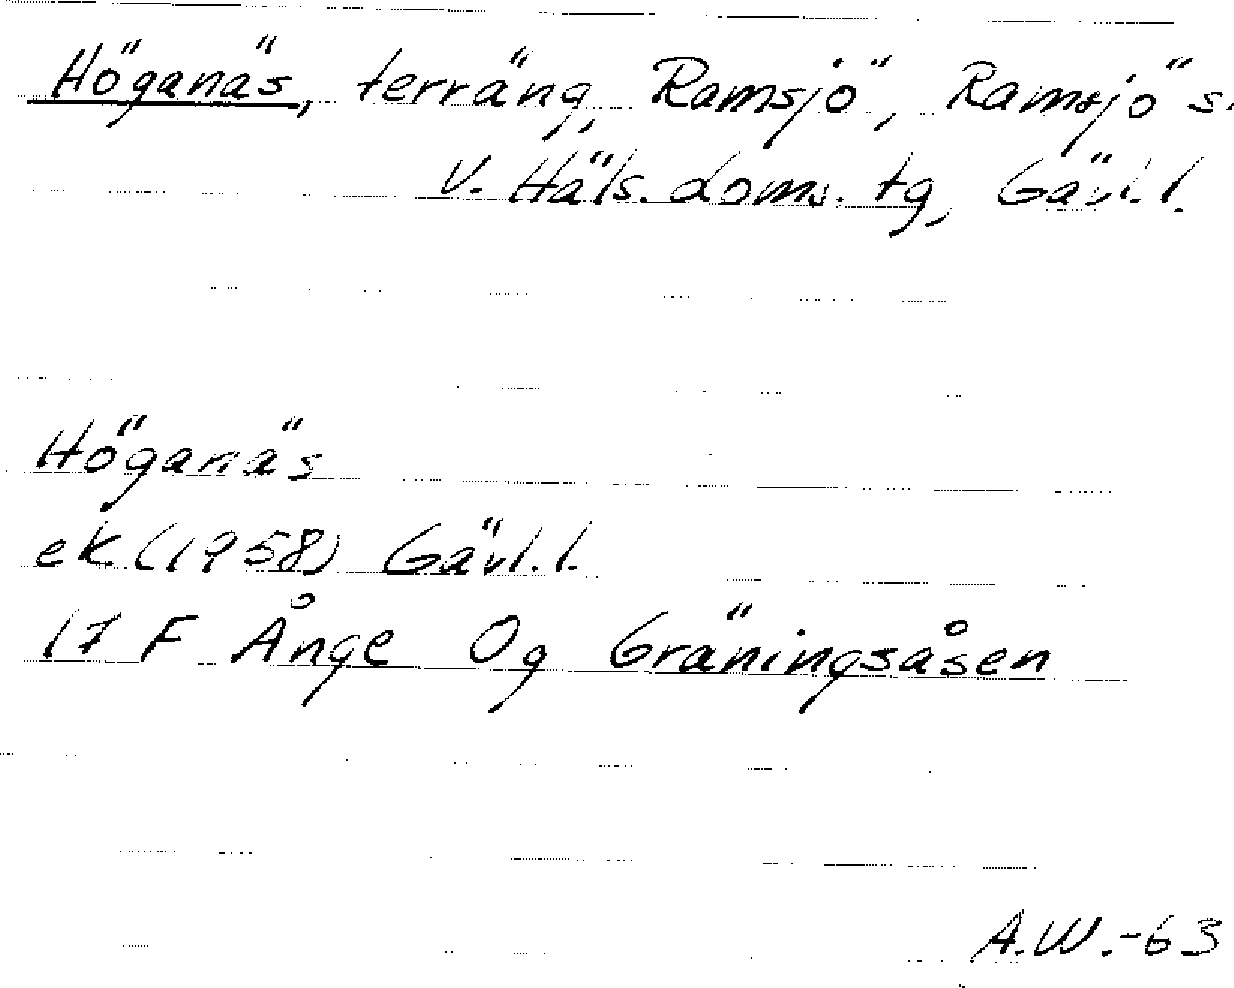 Höganäs, terräng, Ramsjö, Ramsjö s.
V. Häls. doms. tg, Gävl. l.
Höganäs
ek. (1958) Gävl. l.
17 F Ånge Og Gräningsåsen
A.W.-63